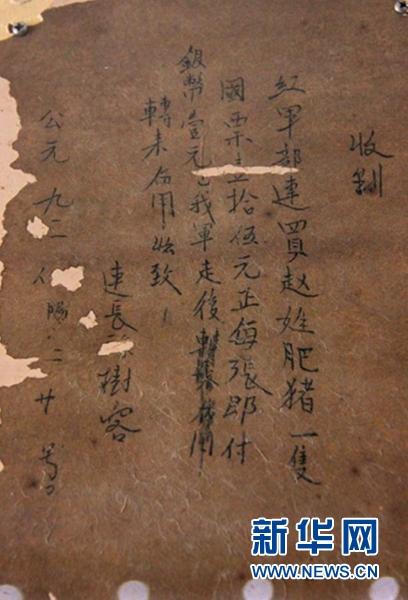 收到
红軍部連買赵姓肥猪一隻
國票 拾伍元正每張即付
銀幣壹元 我軍走後
轉来 用 致
連長 樹容
公元 九二八 二廿 号
新华网
WWW.NEWS.CN